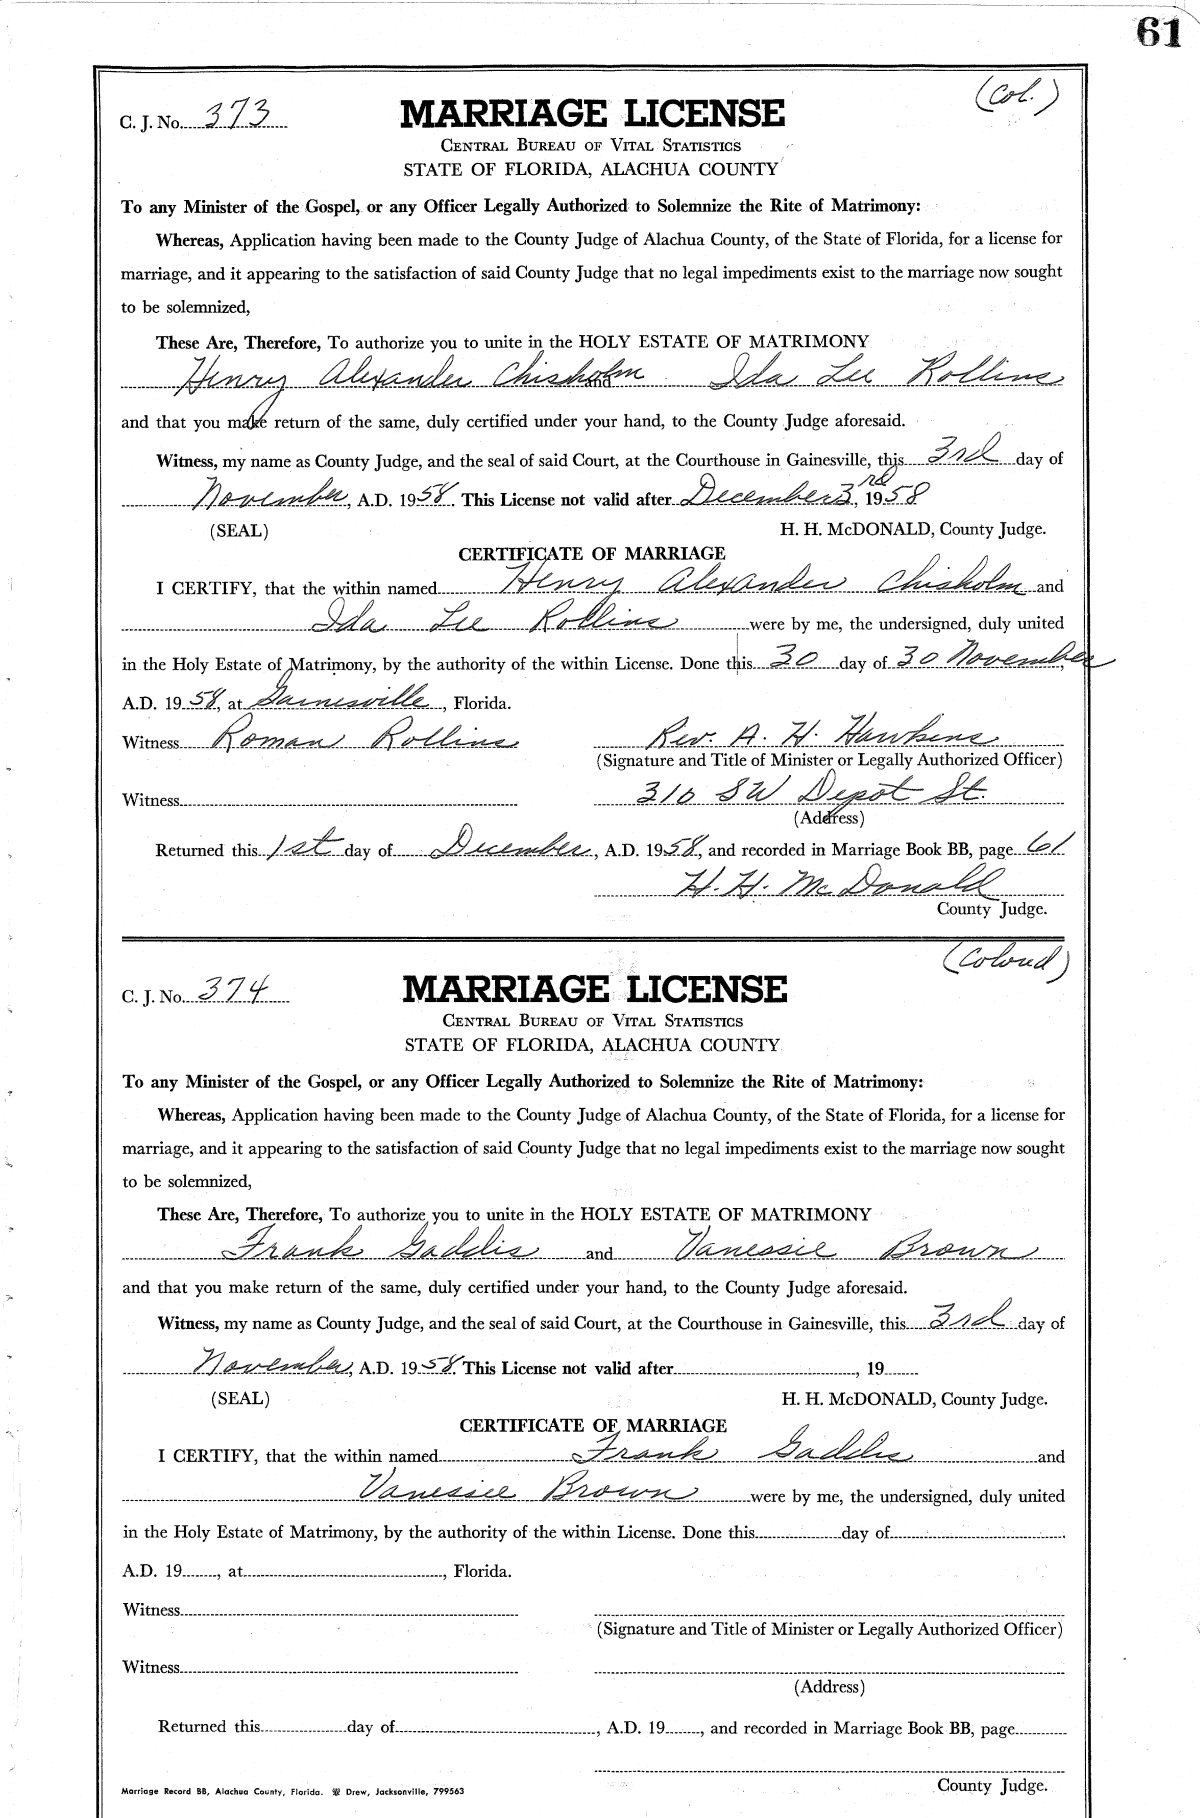 61
(Col.)
C. J. No. 373
MARRIAGE LICENSE
CENTRAL BUREAU OF VITAL STATISTICS
STATE OF FLORIDA, ALACHUA COUNTY
To any Minister of the Gospel, or any Officer Legally Authorized to Solemnize the Rite of Matrimony:
Whereas, Application having been made to the County Judge of Alachua County, of the State of Florida, for a license for
marriage, and it appearing to the satisfaction of said County Judge that no legal impediments exist to the marriage now sought
to be solemnized,
These Are, Therefore, To authorize you to unite in the HOLY ESTATE OF MATRIMONY
Henry Alexander Chisholm and Ida Lee Rollins
and that you make return of the same, duly certified under your hand, to the County Judge aforesaid.
Witness, my name as County Judge, and the seal of said Court, at the Courthouse in Gainesville, this 3rd day of
November, A.D. 1958. This License not valid after December 3rd, 1958
(SEAL) H. H. McDONALD, County Judge.
CERTIFICATE OF MARRIAGE
I CERTIFY, that the within named Henry Alexander Chisholm and
Ida Lee Rollins were by me, the undersigned, duly united
in the Holy Estate of Matrimony, by the authority of the within License. Done this 30 day of 30 November,
A.D. 1958, at Gainesville, Florida.
Witness Roman Rollins Rev. A. H. Hawkins
(Signature and Title of Minister or Legally Authorized Officer)
Witness 310 SW Depot St.
(Address)
Returned this 1st day of December, A.D. 1958, and recorded in Marriage Book BB, page 61
H. H. McDonald
County Judge.
(Colored)
C. J. No. 374
MARRIAGE LICENSE
CENTRAL BUREAU OF VITAL STATISTICS
STATE OF FLORIDA, ALACHUA COUNTY
To any Minister of the Gospel, or any Officer Legally Authorized to Solemnize the Rite of Matrimony:
Whereas, Application having been made to the County Judge of Alachua County, of the State of Florida, for a license for
marriage, and it appearing to the satisfaction of said County Judge that no legal impediments exist to the marriage now sought
to be solemnized,
These Are, Therefore, To authorize you to unite in the HOLY ESTATE OF MATRIMONY
Frank Gaddis and Vanessie Brown
and that you make return of the same, duly certified under your hand, to the County Judge aforesaid.
Witness, my name as County Judge, and the seal of said Court, at the Courthouse in Gainesville, this 3rd day of
November, A.D. 1958. This License not valid after , 19
(SEAL) H. H. McDONALD, County Judge.
CERTIFICATE OF MARRIAGE
I CERTIFY, that the within named Frank Gaddis and
Vanessie Brown were by me, the undersigned, duly united
in the Holy Estate of Matrimony, by the authority of the within License. Done this day of .
A.D. 19 , at , Florida.
Witness
(Signature and Title of Minister or Legally Authorized Officer)
Witness
(Address)
Returned this day of , A.D. 19 , and recorded in Marriage Book BB, page
County Judge.
Marriage Record BB, Alachua County, Florida. Drew, Jacksonville, 799563